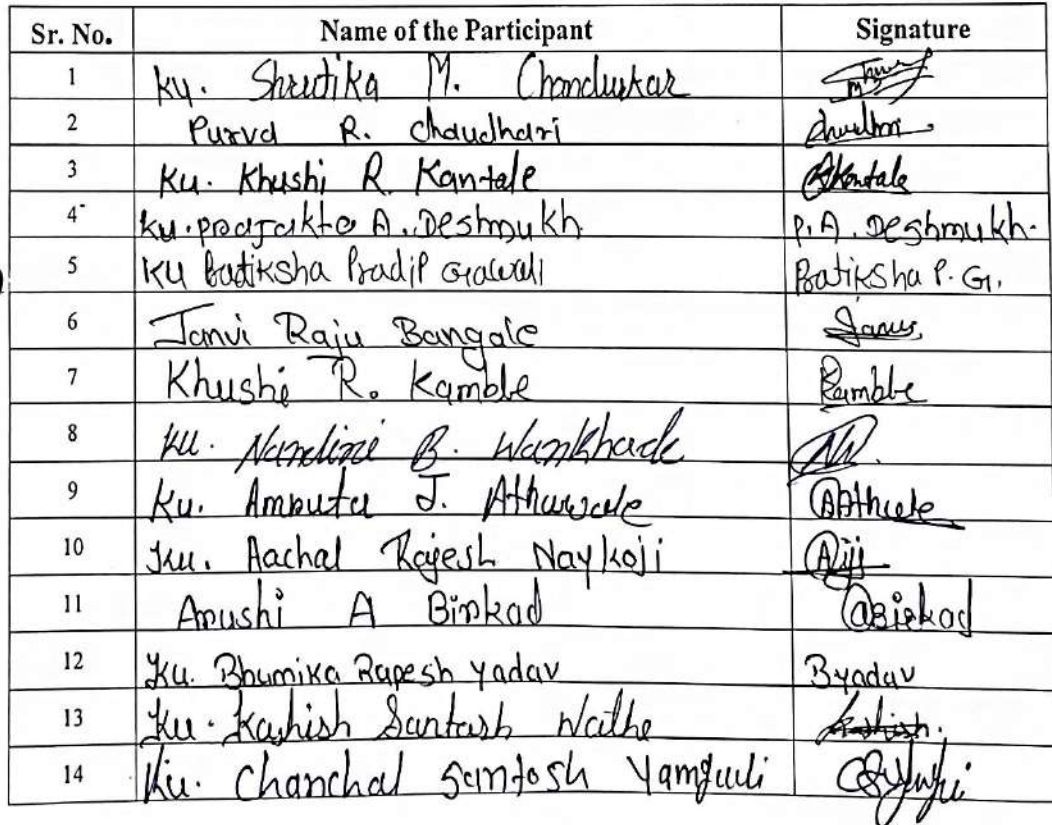 Sr. No. Name of the Participant Signature
1 Ku. Shrutika M. Chandurkar
2 Purva R. Chaudhari
3 Ku. Khushi R. Kantale RKantale
4 Ku. prajakta A. Deshmukh P. A. Deshmukh.
5 Ku Pratiksha Pradip Gawali Pratiksha P. G.
6 Janvi Raju Bangale
7 Khushi R. Kamble Kamble
8 Ku. Nandini B. Wankhade
9 Ku. Amruta J. Athawale
10 Ku. Aachal Rajesh Naykoji
11 Arushi A Birkad ABirkad
12 Ku. Bhumika Rapesh Yadav Byadav
13 Ku. Kashish Santosh Wathe Kashish.
14 Ku. Chanchal Santosh